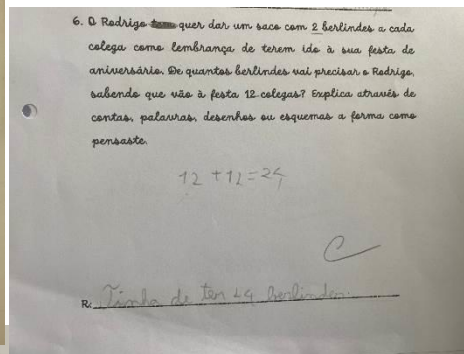 6. O Rodrigo quer dar um saco com 2 berlindes a cada
colega como lembrança de terem ido à sua festa de
aniversário. De quantos berlindes vai precisar o Rodrigo,
sabendo que vão à festa 12 colegas? Explica através de
contas, palavras, desenhos ou esquemas a forma como
pensaste.
12 + 12 = 24
C
R: Tinha de ter 24 berlindes.